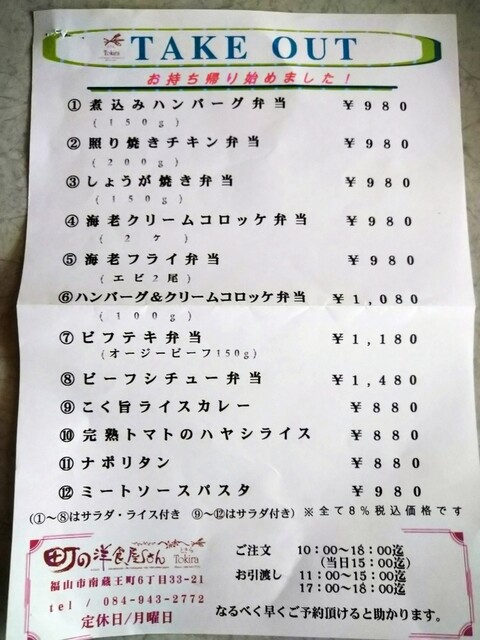 Tokira
TAKE OUT
お持ち帰り始めました!
①煮込みハンバーグ弁当 ￥980
(150g)
②照り焼きチキン弁当 ￥980
(200g)
③しょうが焼き弁当 ￥980
(150g)
④海老クリームコロッケ弁当 ￥980
(2ケ)
⑤海老フライ弁当 ￥980
(エビ2尾)
⑥ハンバーグ&クリームコロッケ弁当 ￥1,080
(100g)
⑦ビフテキ弁当 ￥1,180
(オージービーフ150g)
⑧ビーフシチュー弁当 ￥1,480
⑨こく旨ライスカレー ￥880
⑩完熟トマトのハヤシライス ￥880
⑪ナポリタン ￥880
⑫ミートソースパスタ ￥980
(①〜⑧はサラダ・ライス付き ⑨〜⑫はサラダ付き) ※全て8%税込価格です
町の洋食屋さん Tokira
福山市南蔵王町6丁目33-21
tel / 084-943-2772
定休日/月曜日
ご注文 10:00〜18:00迄
(当日15:00迄)
お引渡し 11:00〜15:00迄
17:00〜18:00迄
なるべく早くご予約頂けると助かります。